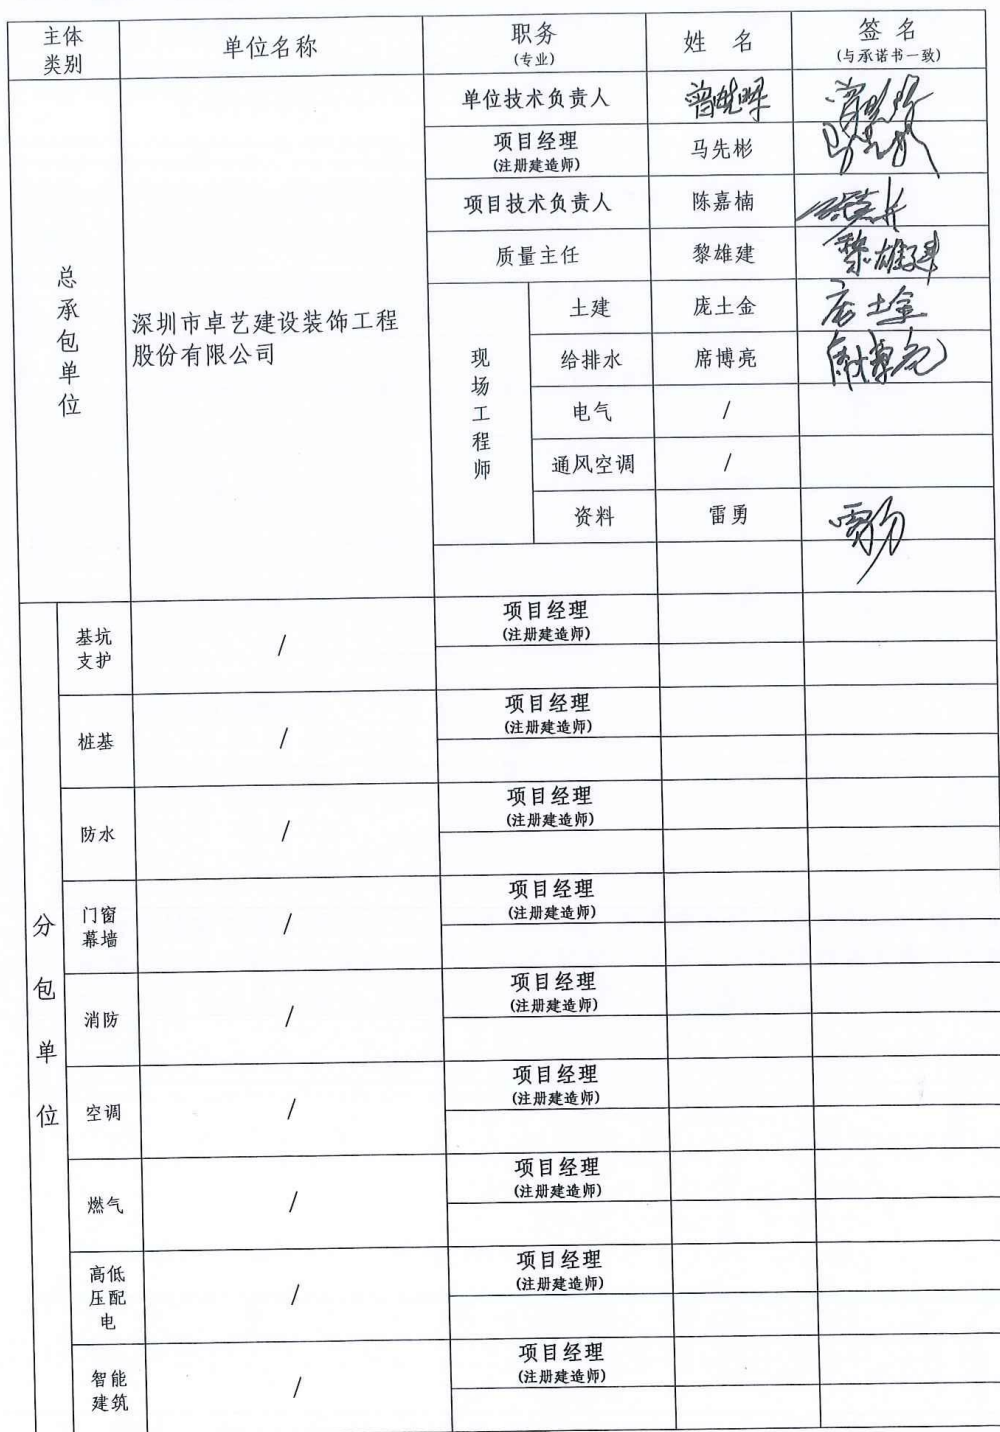 主体类别 单位名称 职务(专业) 姓名 签名(与承诺书一致)
总承包单位
深圳市卓艺建设装饰工程
股份有限公司
单位技术负责人
项目经理
(注册建造师)
马先彬
项目技术负责人 陈嘉楠
质量主任 黎雄建 黎雄建
现场工程师
土建 庞土金 庞土金
给排水 席博亮
电气 /
通风空调 /
资料 雷勇 雷勇
分包单位
基坑
支护
/
项目经理
(注册建造师)
桩基 /
项目经理
(注册建造师)
防水 /
项目经理
(注册建造师)
门窗
幕墙
/
项目经理
(注册建造师)
消防 /
项目经理
(注册建造师)
空调 /
项目经理
(注册建造师)
燃气 /
项目经理
(注册建造师)
高低
压配
电
/
项目经理
(注册建造师)
智能
建筑
/
项目经理
(注册建造师)